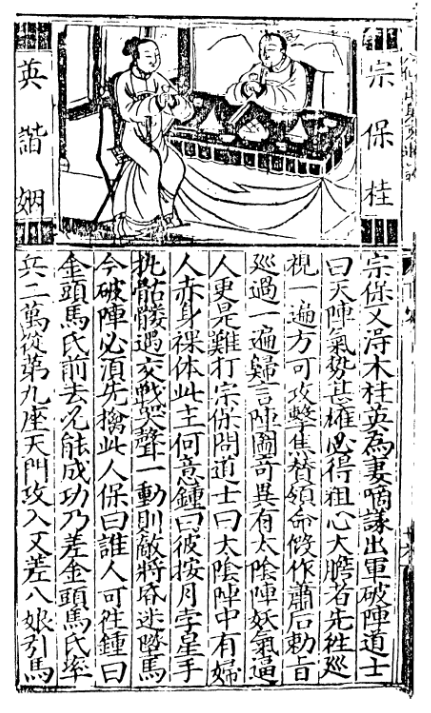 宗保桂
英諧姻
宗保又淂木桂英為妻啇議出軍破陣道士
曰天陣氣勢甚雄必得粗心大膽者先徃巡
視一遍方可攻擊焦賛領命假作蕭后勅旨
巡過一遍歸言陣圖竒異有太陰陣妖氣逼
人更是難打宗保問道士曰太陰陣中有婦
人赤身裸体此主何意鍾曰彼按月孛星手
執骷髏遇交戰哭聲一動則敵將昏迷墜馬
今破陣必湏先擒此人保曰誰人可徃鍾曰
金頭馬氏前去必能成功乃差金頭馬氏率
兵二萬從第九座天門攻入又差八娘引馬